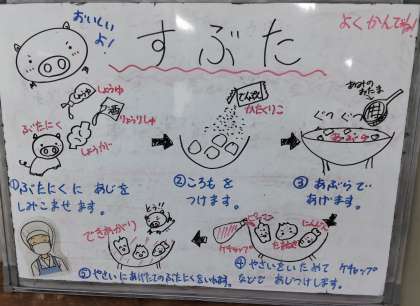 おいしい
よ!
すぶた
よくかんでね!
しょうゆ
酒
りょうりしゅ
ぶたにく
しょうが
でんぷん
かたくりこ
あみのおたま
ぐつ ぐつ
あぶら
①ぶたにくに あじを
しみこませます。
②ころもを
つけます。
③あぶらで
あげます。
できあがり
とう!!
ケチャップ
ピーマン
たまねぎ
にんじん
④やさいをいためて ケチャップ
などで あじつけします。
⑤やさいにあげたてのぶたにくをいれます。